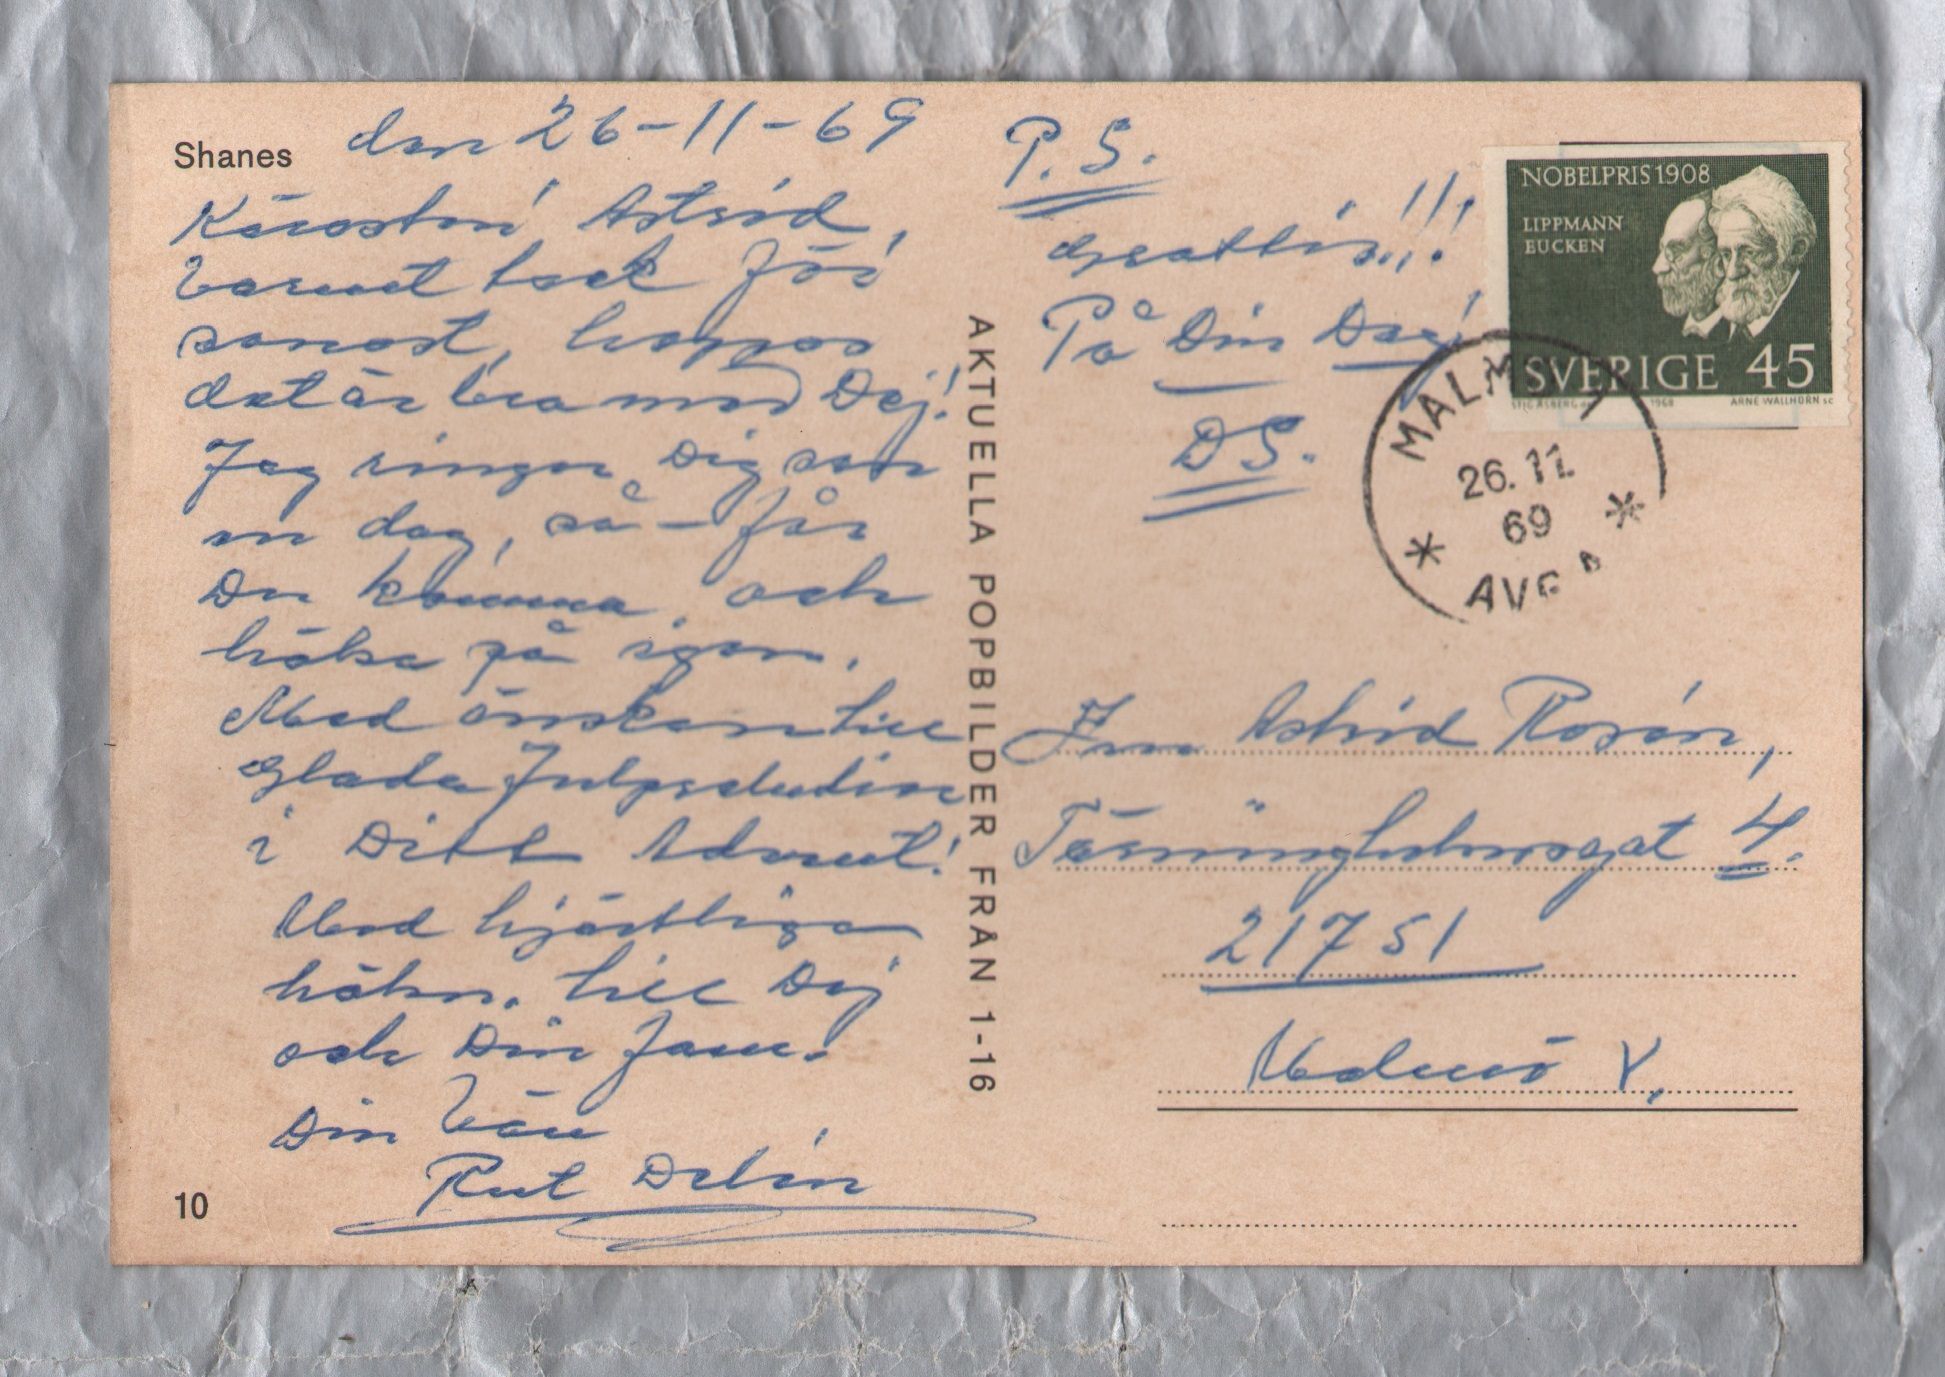 Shanes
den 26-11-69
Käraste Astrid,
Varmt tack för
senast, hoppas
det är bra med Dej!
Jag ringer Dig sen
en dag, så - får
Du komma och
hälsa på igen.
Med önskan till
Glada Julpreludier
i Ditt Advent!
Med hjärtliga
hälsn. till Dej
och Din fam.
Din Vän
Rut Delin
10
AKTUELLA POPBILDER FRÅN 1-16
P.S.
Grattis!!!
På Din Dag!
DS.
NOBELPRIS 1908
LIPPMANN
EUCKEN
SVERIGE 45
STIG ÅSBERG del 1968 ARNE WALLHORN sc
MALMÖ 1
26.11.
69
* AVG *
Fru Astrid Rosén,
4.
217 51
Malmö V.